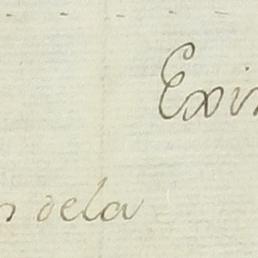 Exi
dela